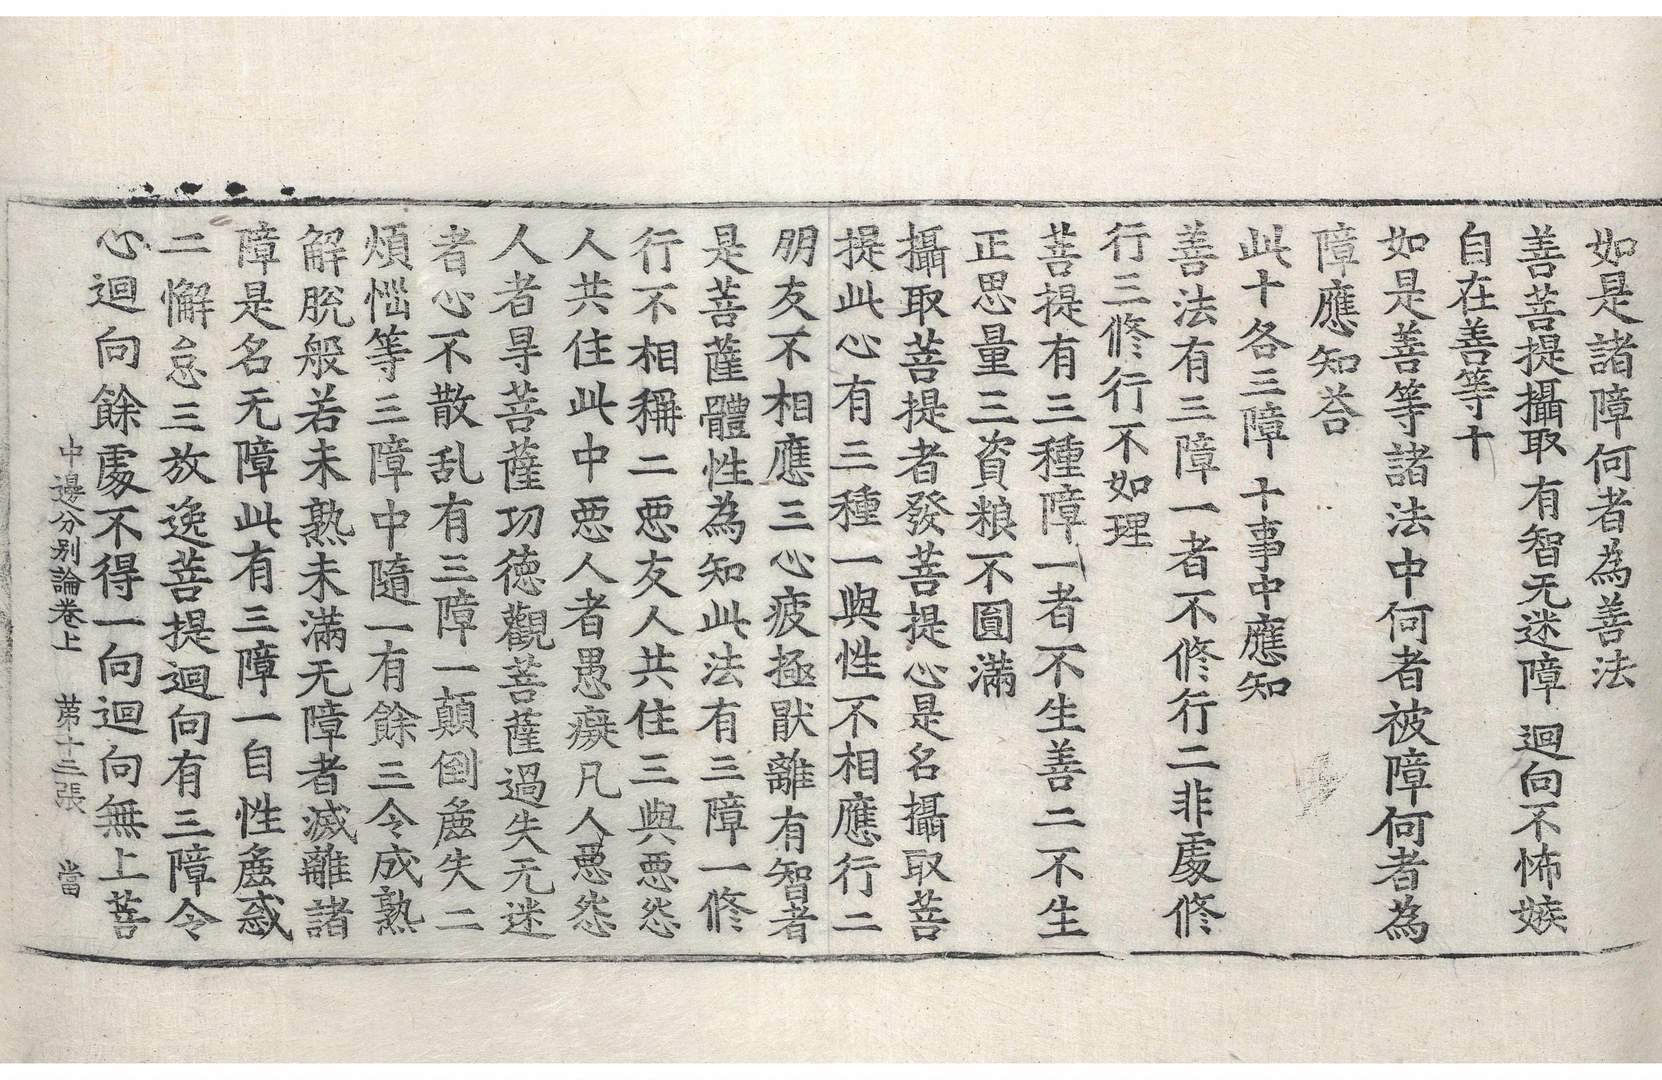 如是諸障何者為善法
善菩提攝取 有智无迷障 迴向不怖嫉
自在善等十
如是善等諸法中何者被障何者為
障應知荅
此十各三障 十事中應知
善法有三障一者不修行二非處修
行三修行不如理
菩提有三種障一者不生善二不生
正思量三資粮不圓滿
攝取菩提者發菩提心是名攝取菩
提此心有三種一與性不相應行二
朋友不相應三心疲極猒離有智者
是菩薩體性為知此法有三障一修
行不相稱二惡友人共住三與惡怨
人共住此中惡人者愚癡凡人惡怨
人者㝵菩薩功德觀菩薩過失无迷
者心不散乱有三障一顛倒麁失二
煩惱等三障中隨一有餘三令成熟
解脫般若未熟未滿无障者滅離諸
障是名无障此有三障一自性麁惑
二懈怠三放逸菩提迴向有三障令
心迴向餘處不得一向迴向無上菩
中邊分別論卷上 第十三張 當